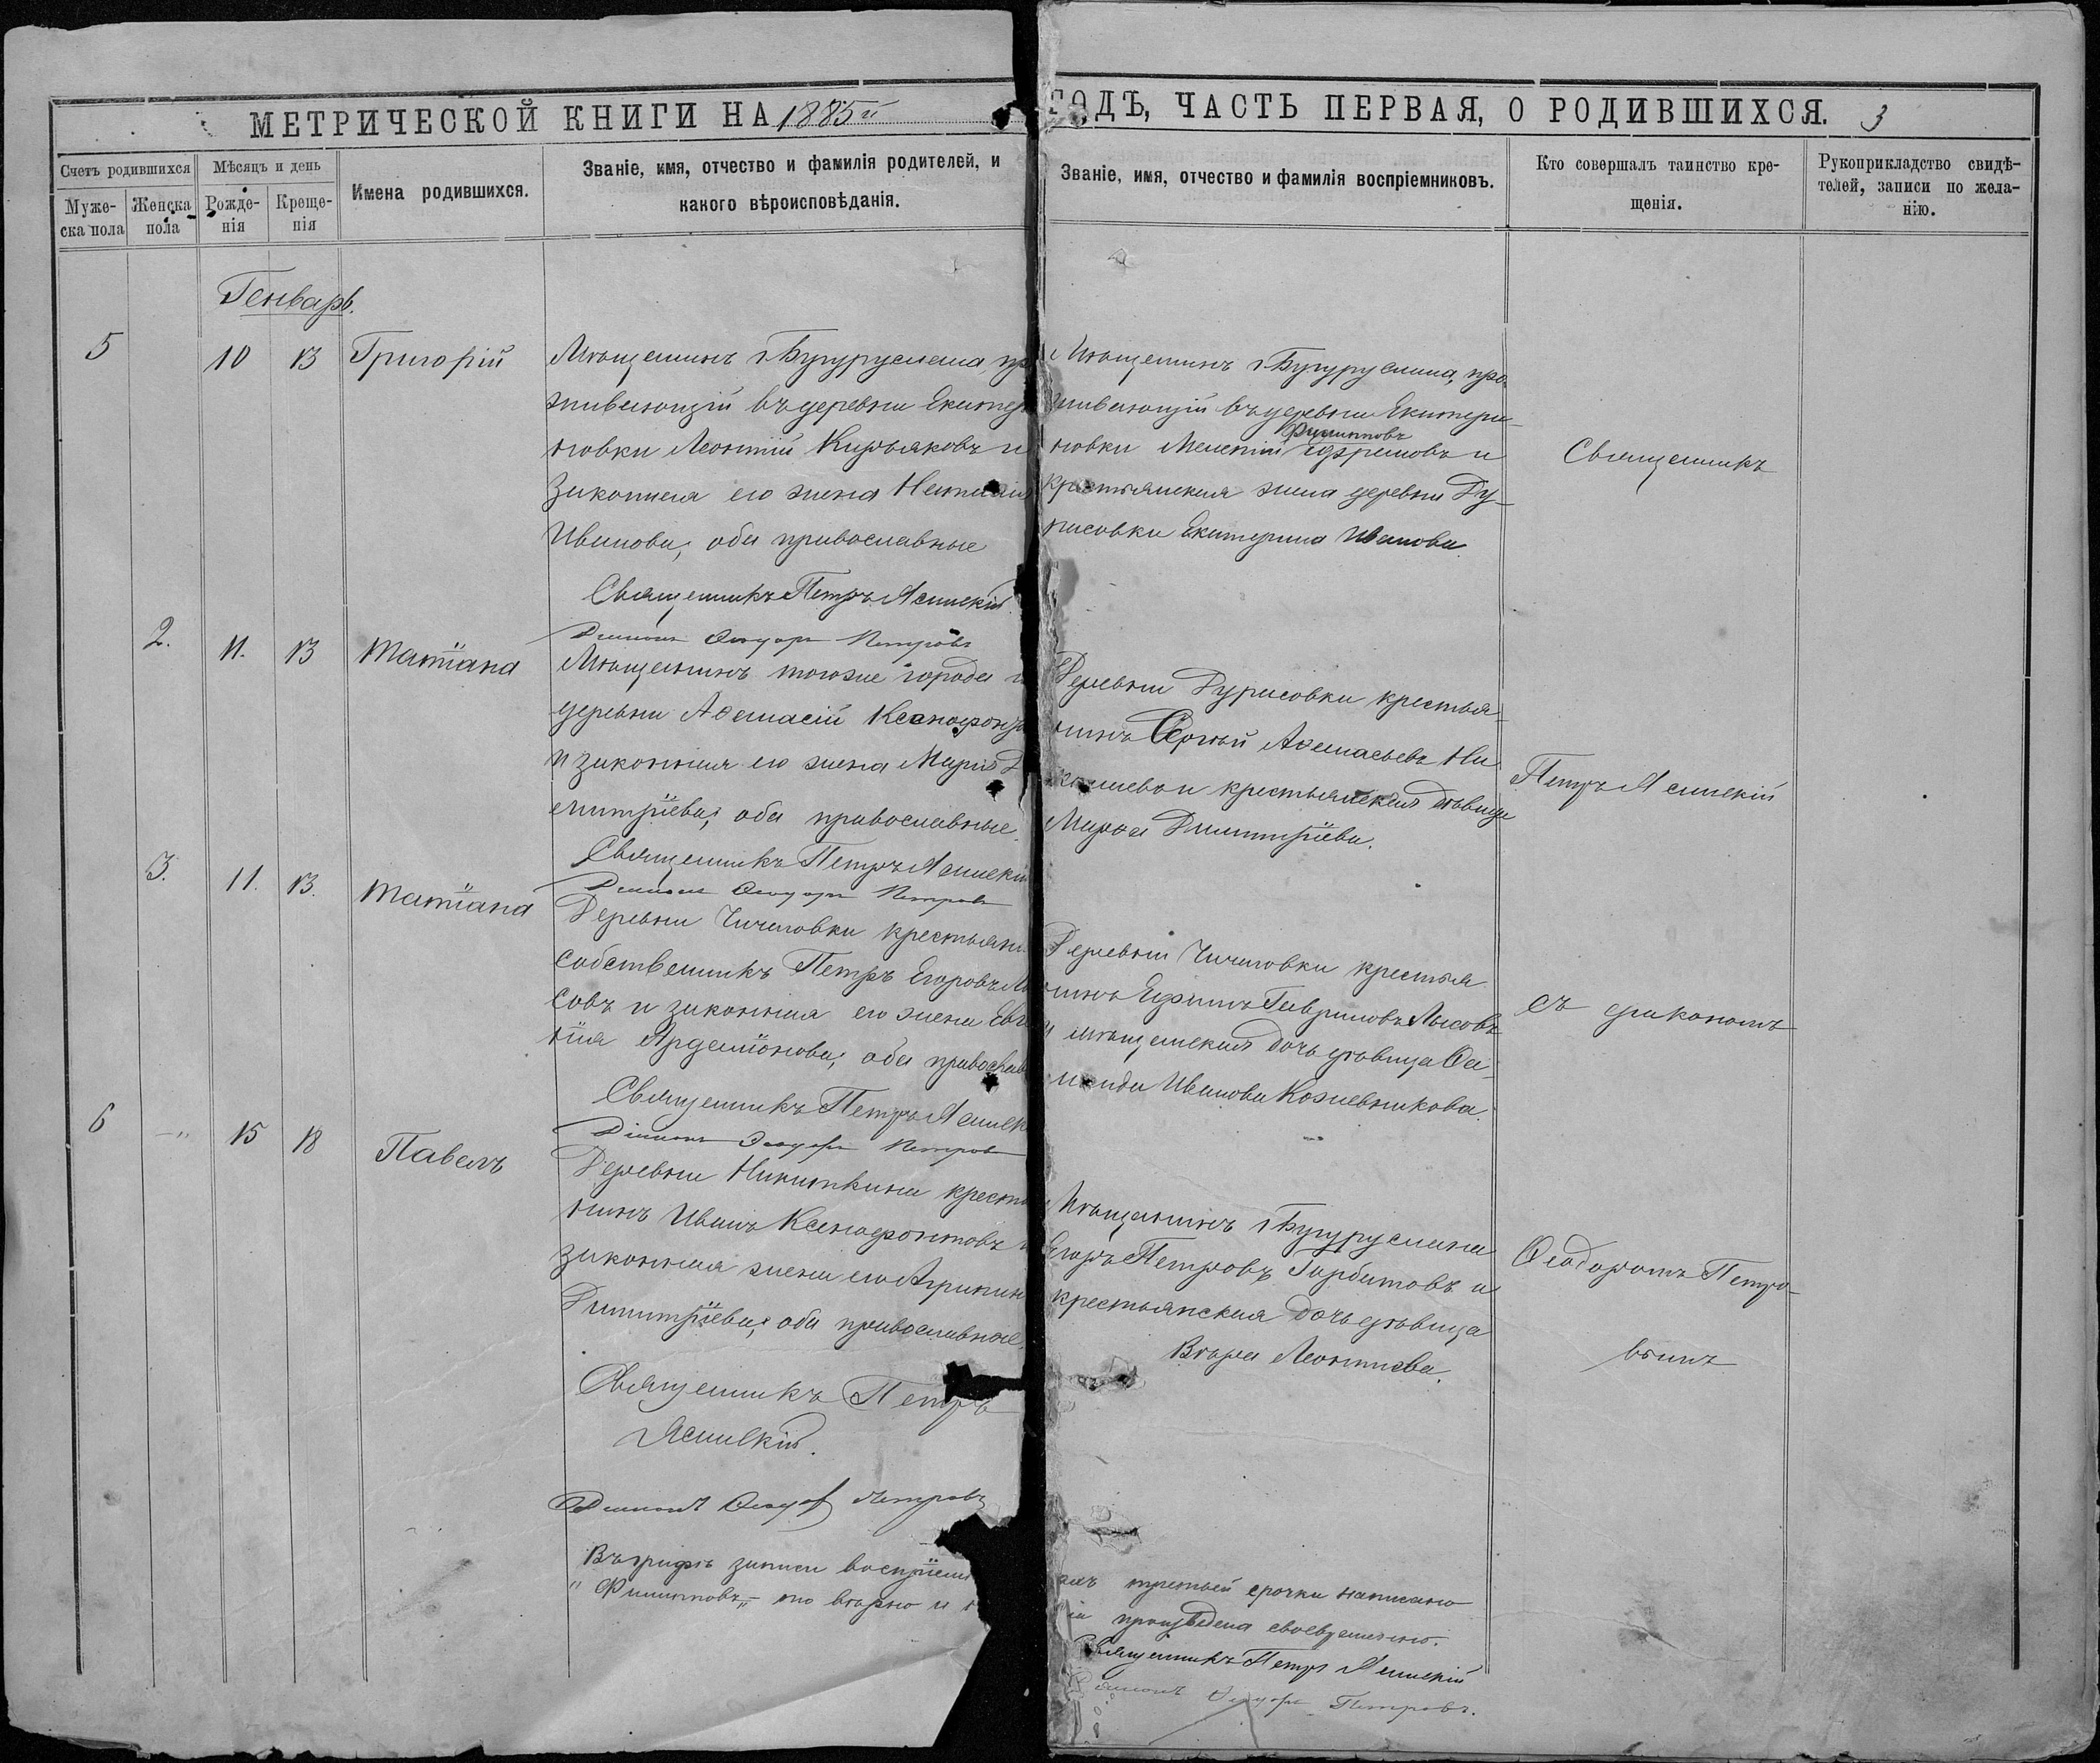 МЕТРИЧЕСКОЙ КНИГИ НА 1885й ГОДЪ, ЧАСТЬ ПЕРВАЯ, О РОДИВШИХСЯ. 3
Счетъ родившихся
Муже-
ска пола
Женска
пола
Мѣсяцъ и день
Рожде-
нія
Креще-
нія
Имена родившихся.
Званіе, имя, отчество и фамилія родителей, и
какого вѣроисповѣданія.
Званіе, имя, отчество и фамилія воспріемниковъ.
Кто совершалъ таинство кре-
щенія.
Рукоприкладство свидѣ-
телей, записи по жела-
нію.
Генварь.
5
10
13
Григорій
Мѣщанинъ г. Бугуруслана, пр
живающій въ деревни Екатер
новки Леонтій Кирьяковъ и
законная его жена Наталія
Иванова, оба православные
Священникъ Петръ Ясинскій.
Діаконъ Ѳеодоръ Петровъ
Мѣщанинъ г. Бугуруслана, про-
живающій въ деревни Екатери-
Филиповъ
новки Ефремовъ и
крестьянская жена деревни Ду-
расовки Екатерина Иванова.
2.
11.
13
Татіана
Мѣщанинъ тогоже города и
деревни Аѳанасій Ксенофонт
и законная его жена Марія Д
митріева, оба православные
Священникъ Петръ Ясинскій
Діаконъ Ѳеодоръ Петровъ
Деревни Дурасовки крестья-
нинъ Сергѣй Аѳанасьевъ
и крестьянская дѣвица
Марѳа Димитріева.
3.
11.
13.
Татіана
Деревни Чичаговки крестьяни
собственникъ Петръ Егоровъ Лы
совъ и законная его жена Евг
нія Ардаліонова, оба православ
Священникъ Петръ Ясинск
Діаконъ Ѳеодоръ Петровъ
Деревни Чичаговки крестья
нинъ Ефимъ Гавриловъ Лысовъ
и мѣщанская дочь дѣвица
Иванова Кожевникова.
6
-"
15
18
Павелъ
Деревни Никиткина крестья
нинъ Иванъ Ксенофонтовъ и
законная жена его Агрипин
Димитріева, оба православные.
Священникъ Петръ
Ясинскій.
Діаконъ Ѳеодоръ Петровъ
Мѣщанинъ г. Бугуруслана
Егоръ Петровъ Горбатовъ и
крестьянская дочь дѣвица
Вѣра Леонтиева.
Священникъ
Петръ Ясинскій
съ діакономъ
Ѳеодоромъ Петро-
вымъ
Въ графѣ записи воспріемн
третьей строчки написано
"Филиповъ" - то вѣрно и
произведена своевременно.
Священникъ Петръ Ясинскій
Діаконъ Ѳеодоръ Петровъ.